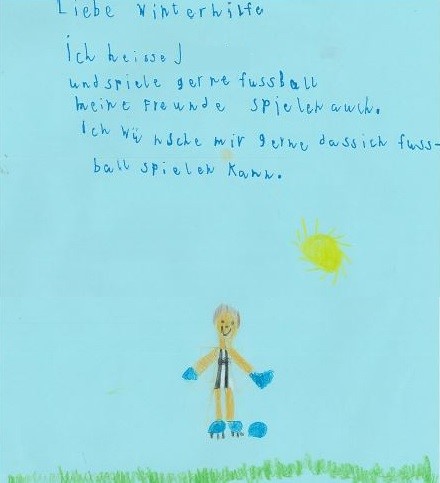 Liebe Winterhilfe
Ich heisse J
und spiele gerne fussball
meine Freunde spielen auch.
Ich wünsche mir gerne dass ich fuss-
ball spielen kann.